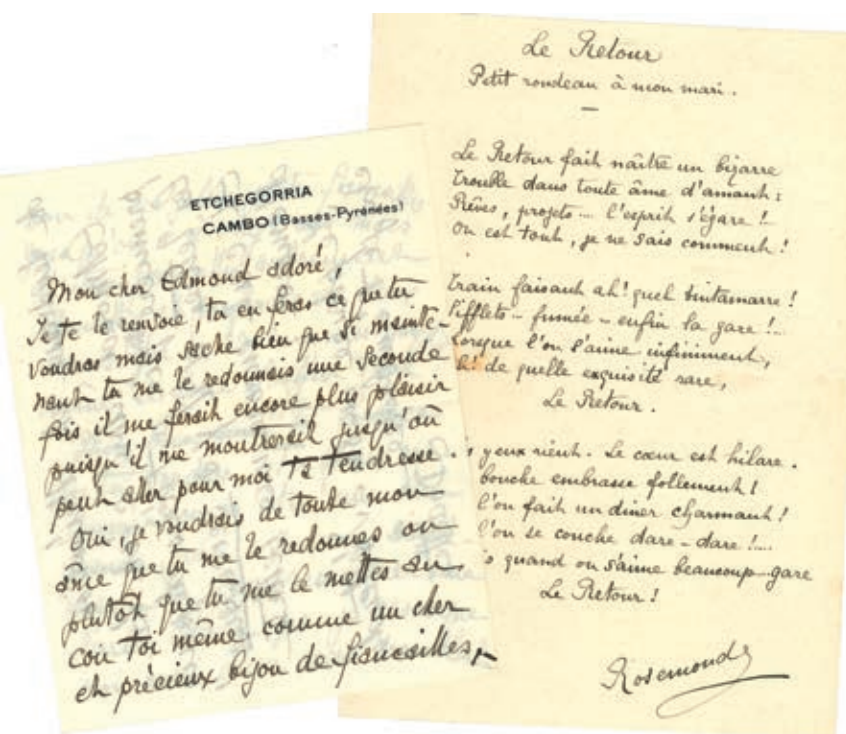 ETCHEGORRIA
CAMBO (Basses-Pyrénées)
Mon cher Edmond adoré,
Je te le renvoie, tu en feras ce que tu
voudras mais sache bien que si mainte-
nant tu me le redonnais une seconde
fois il me ferait encore plus plaisir
puisqu'il me montrerait jusqu'où
peut aller pour moi ta tendresse.
Oui, je voudrais de toute mon
âme que tu me le redonnes ou
plutôt que tu me le mettes au
cou toi même comme un cher
et précieux bijou de fiancailles,
Le Retour
Petit rondeau à mon mari.
Le Retour fait naître un bizarre
Trouble dans toute âme d'amant :
Rêves, projets.... l'esprit s'égare !..
On est tout, je ne sais comment !
Train faisant ah ! quel tintamarre !
Sifflets - fumée - enfin la gare !..
Lorsque l'on s'aime infiniment,
Ah! de quelle exquisité rare,
Le Retour.
yeux rient. Le cœur est hilare.
bouche embrasse follement !
l'on fait un dîner charmant !
l'on se couche dare-dare !....
quand on s'aime beaucoup gare
Le Retour !
Rosemonde